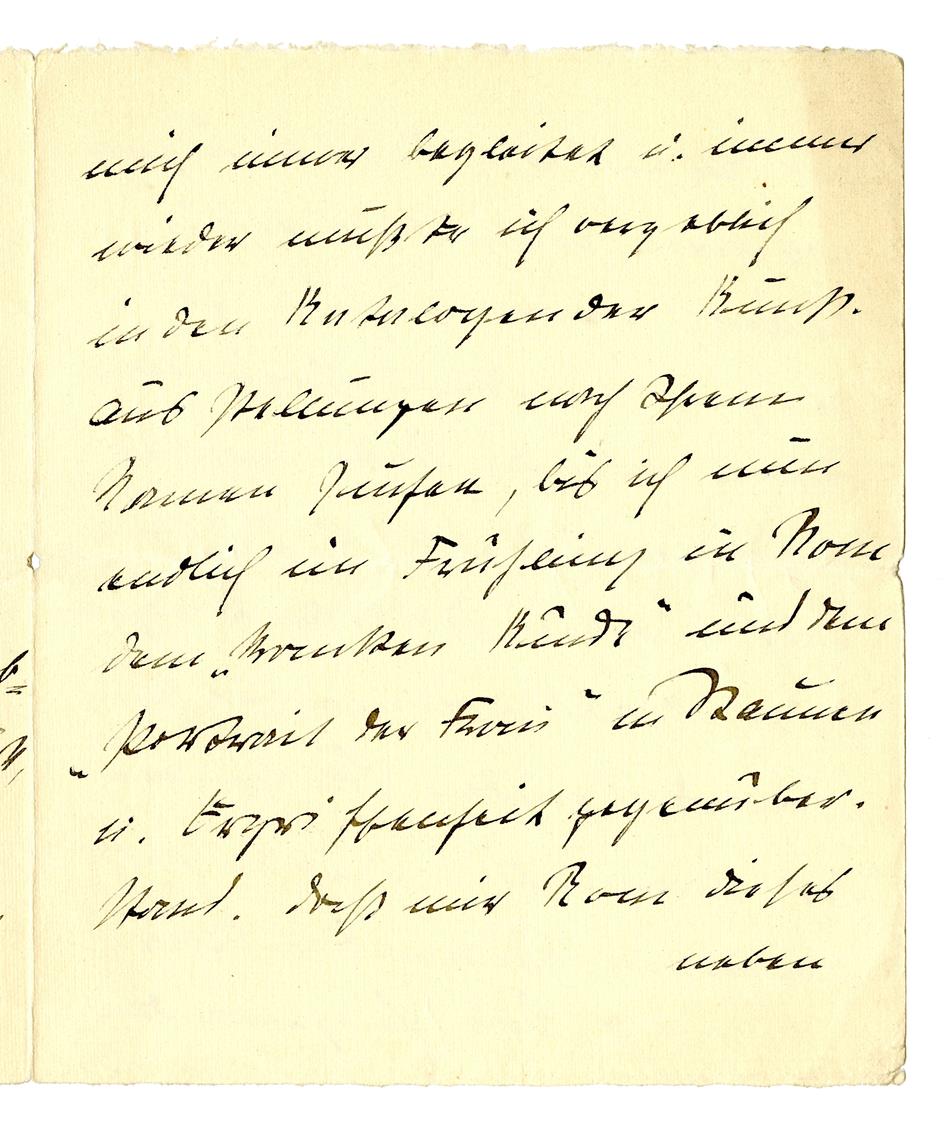 mich immer begleitet u. immer
wieder mußte ich vergeblich
in den Katalogen der Kunst-
ausstellungen nach Ihrem
Namen suchen, bis ich nun
endlich im Frühling in Rom
dem „kranken Kinde" und dem
„Portrait der Frau" in Staunen
u. Ergriffenheit gegenüber-
stand. Daß mir Rom dieses
neben